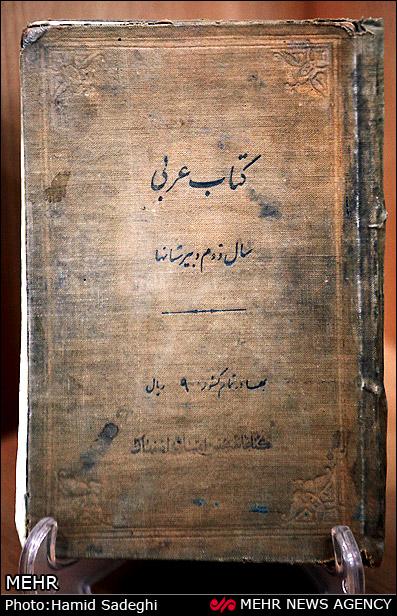 کتاب عربی
سال دوم دبیرستانها
بها در تمام کشور ۹ ریال
MEHR
Photo:Hamid Sadeghi
MEHR NEWS AGENCY